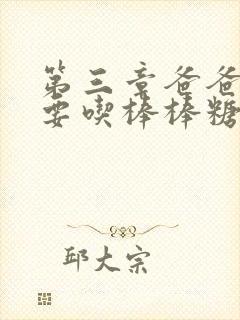 第三章爸爸
要喫棒棒糖
邱大宗